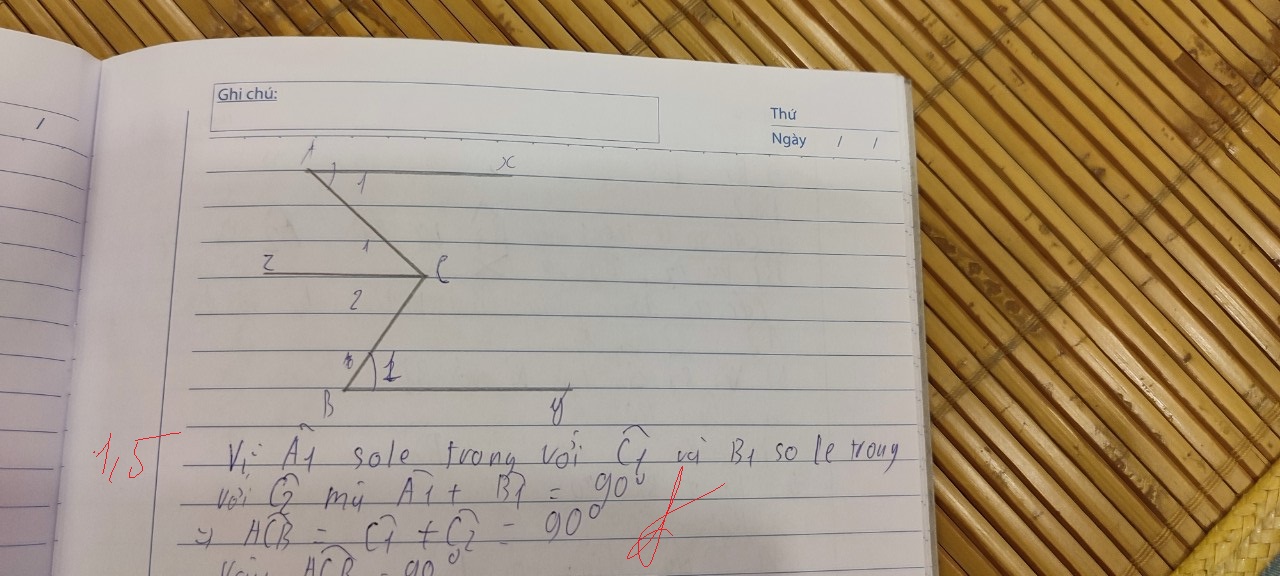 Ghi chú:
Thứ
Ngày / /
A
1
x
1
z
C
2
1
B
y
1,5
Vì Â1 sole trong với Ĉ1 và B1 so le trong
với Ĉ2 mà Â1 + B̂1 = 90⁰
=> AĈB = Ĉ1 + Ĉ2 = 90⁰
Vậy AĈB = 90⁰